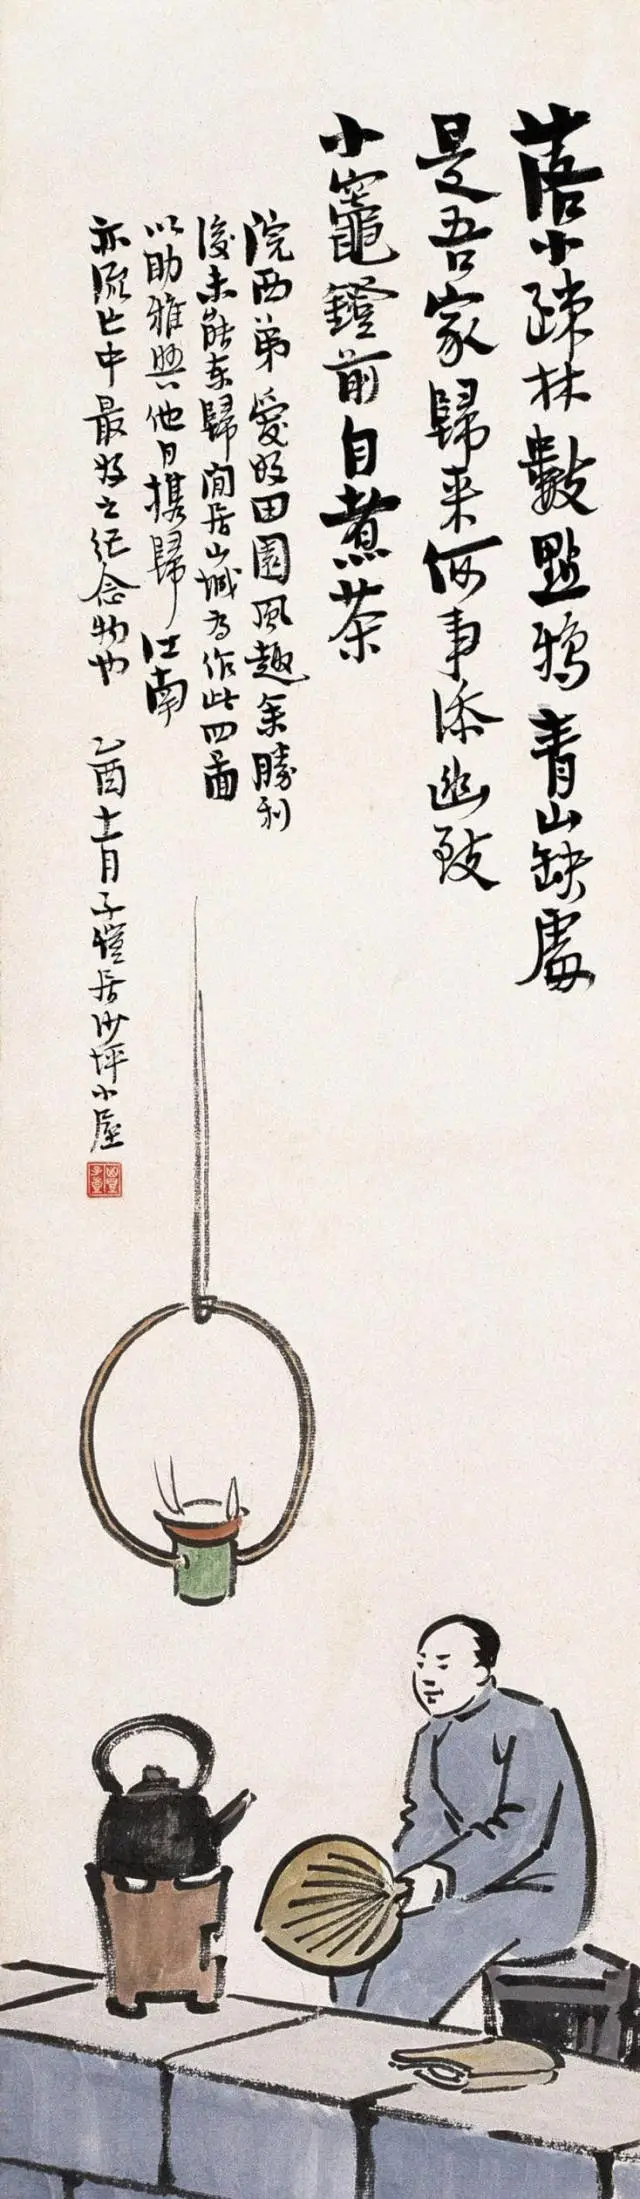 落日踈林數點鴉青山缺處
是吾家歸来何事添幽致
小竈鐙前自煮茶
浣西弟愛好田園風趣余勝利
後未能東歸閒居山城為作此四圖
以助雅興他日携歸江南
亦流亡中最好之紀念物也 乙酉十一月子愷居沙坪小屋